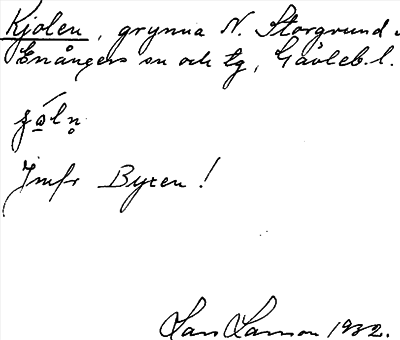 Kjolen, grynna N. Storgrund
Enångers sn och tg, Gävleb. l.
Jmfr Byxen!
Lars Larson 1932.